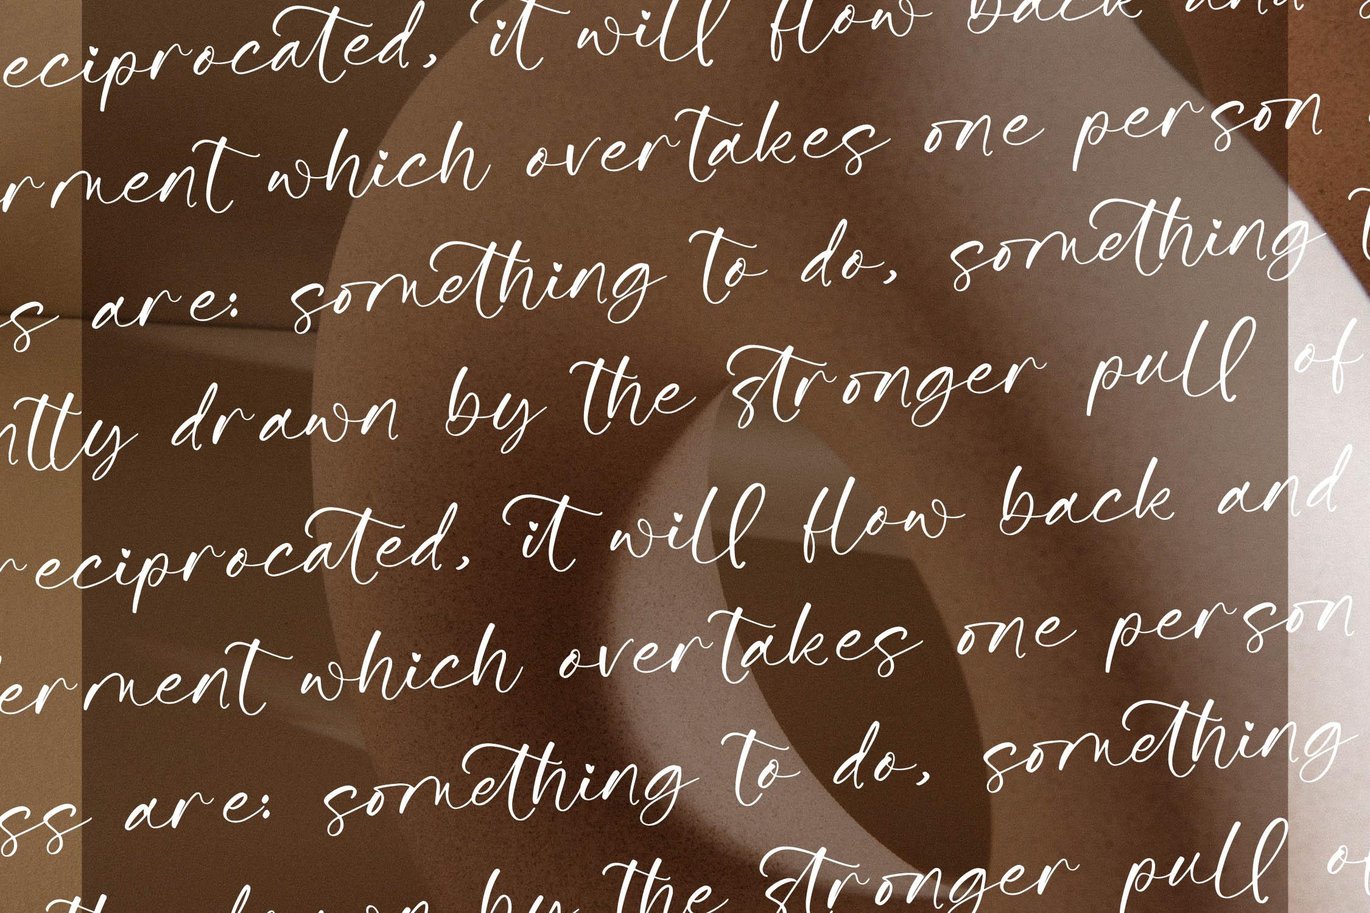 eciprocated, it will flow back and
rment which overtakes one person
s are: something to do, something
ntly drawn by the stronger pull of
reciprocated, it will flow back and
erment which overtakes one person
ss are: something to do, something
drawn by the stronger pull of